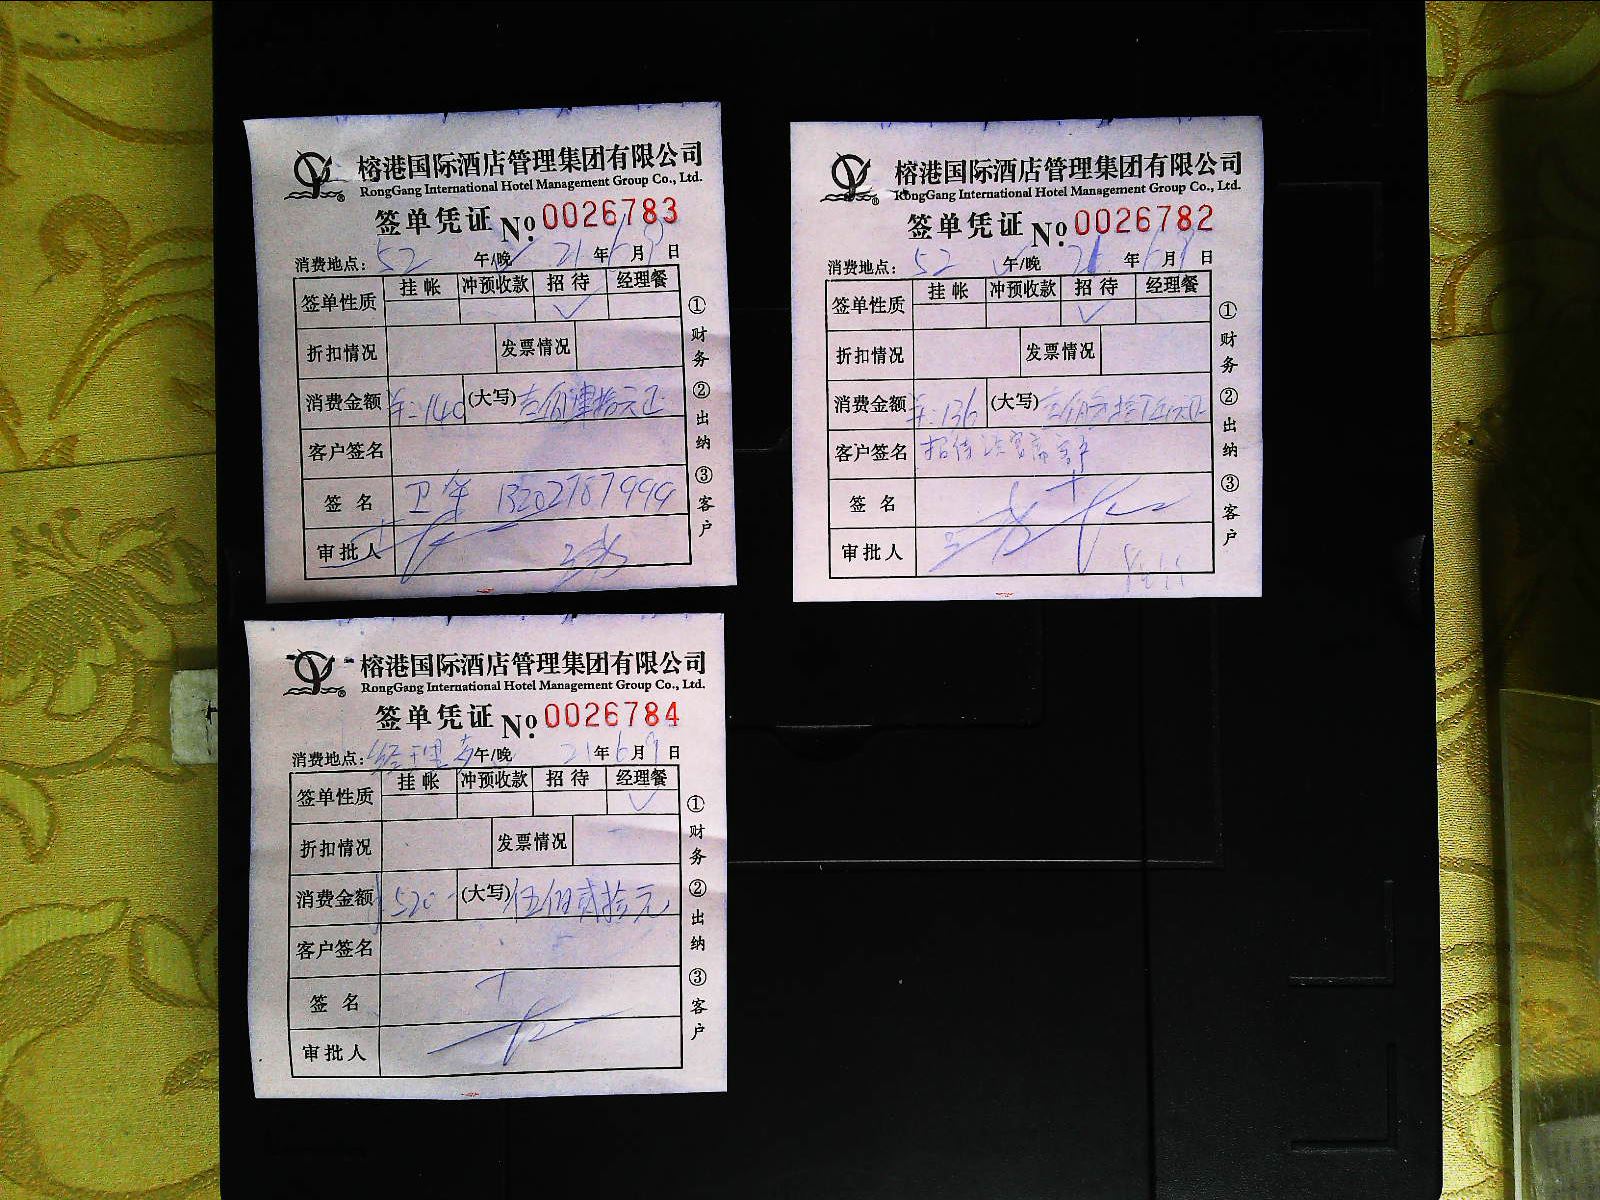 榕港国际酒店管理集团有限公司
RongGang International Hotel Management Group Co., Ltd.
签单凭证 No. 0026783
消费地点: 52 午/晚 21年6月9日
签单性质 挂帐 冲预收款 招待 经理餐
✓
折扣情况 发票情况
消费金额 ¥:140 (大写)壹佰肆拾元正
客户签名
签名 卫
审批人
①财务 ②出纳 ③客户
榕港国际酒店管理集团有限公司
RongGang International Hotel Management Group Co., Ltd.
签单凭证 No. 0026782
消费地点: 52 午/晚 21年6月9日
签单性质 挂帐 冲预收款 招待 经理餐
✓
折扣情况 发票情况
消费金额 ¥:136 (大写)壹佰叁拾陆元正
客户签名 招待
签名
审批人
①财务 ②出纳 ③客户
榕港国际酒店管理集团有限公司
RongGang International Hotel Management Group Co., Ltd.
签单凭证 No. 0026784
消费地点: 经理餐 午/晚 21年6月9日
签单性质 挂帐 冲预收款 招待 经理餐
✓
折扣情况 发票情况
消费金额 ¥520- (大写)伍佰贰拾元
客户签名
签名
审批人
①财务 ②出纳 ③客户